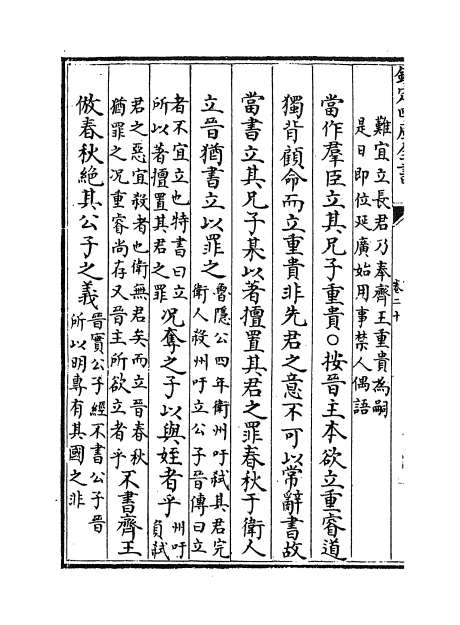 欽定四庫全書
卷二十
難宜立長君乃奉齊王重貴為嗣
是日即位延廣始用事禁人偶語
當作羣臣立其兄子重貴○按晉主本欲立重睿道
獨背顧命而立重貴非先君之意不可以常辭書故
當書立其兄子某以著擅置其君之罪春秋于衛人
立晉猶書立以罪之魯隱公四年衛州吁弑其君完
衛人殺州吁立公子晉傳曰立
者不宜立也特書曰立
所以著擅置其君之罪况奪之子以與姪者乎州吁
負弑
君之惡宜殺者也衛無君矣而立晉春秋
猶罪之况重睿尚存又晉主所欲立者乎不書齊王
倣春秋絶其公子之義晉實公子經不書公子晉
所以明專有其國之非